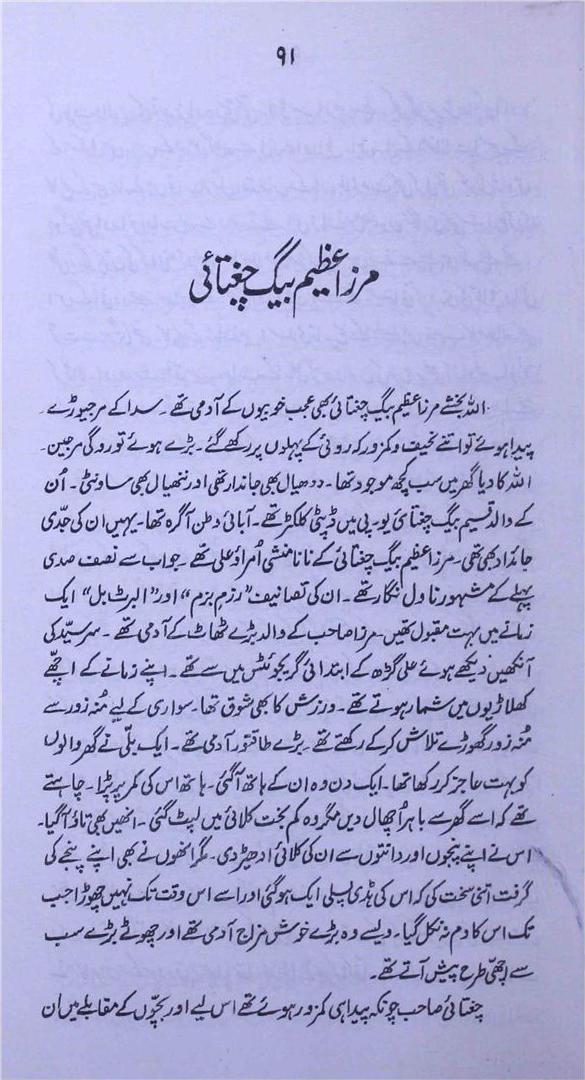 ۹۱
مرزا عظیم بیگ چغتائی
اللہ بخشے مرزا عظیم بیگ چغتائی بھی عجب خوبیوں کے آدمی تھے۔ سدا کے مرجیوڑے۔
پیدا ہوئے تو اتنے نحیف و کمزور کہ روئی کے پہلوں پر رکھے گئے۔ بڑے ہوئے تو روگی مرجین۔
اللہ کا دیا گھر میں سب کچھ موجود تھا۔ ددھیال بھی جاندار تھی اور ننھیال بھی ساونٹی۔ اُن
کے والد قسیم بیگ چغتائی یو۔پی میں ڈپٹی کلکٹر تھے۔ آبائی وطن آگرہ تھا۔ یہیں ان کی جدّی
جائداد بھی تھی۔ مرزا عظیم بیگ چغتائی کے نانا منشی اُمراؤ علی تھے۔ جو اب سے نصف صدی
پہلے کے مشہور ناول نگار تھے۔ ان کی تصانیف ”رزم بزم“ اور ”البرٹ بل“ ایک
زمانے میں بہت مقبول تھیں۔ مرزا صاحب کے والد بڑے ٹھاٹ کے آدمی تھے۔ سرسیّد کی
آنکھیں دیکھے ہوئے علی گڑھ کے ابتدائی گریجوئٹس میں سے تھے۔ اپنے زمانے کے اچھّے
کھلاڑیوں میں شمار ہوتے تھے۔ ورزش کا بھی شوق تھا۔ سواری کے لیے مُنہ زور سے
مُنہ زور گھوڑے تلاش کرکے رکھتے تھے۔ بڑے طاقتور آدمی تھے۔ ایک بلّی نے گھر والوں
کو بہت عاجز کر رکھا تھا۔ ایک دن وہ ان کے ہاتھ آگئی۔ ہاتھ اس کی کمر پر پڑا۔ چاہتے
تھے کہ اسے گھر سے باہر اُچھال دیں مگر وہ کم بخت کلائی میں لپٹ گئی۔ انھیں بھی تاؤ آگیا۔
اس نے اپنے پنجوں اور دانتوں سے ان کی کلائی ادھیڑ دی۔ مگر انھوں نے بھی اپنے پنجے کی
گرفت اتنی سخت کی کہ اس کی ہڈی پسلی ایک ہوگئی اور اسے اس وقت تک نہیں چھوڑا جب
تک اس کا دم نہ نکل گیا۔ ویسے وہ بڑے خوش مزاج آدمی تھے اور چھوٹے بڑے سب
سے اچھّی طرح پیش آتے تھے۔
چغتائی صاحب چونکہ پیدا ہی کمزور ہوئے تھے اس لیے اور بچّوں کے مقابلے میں ان